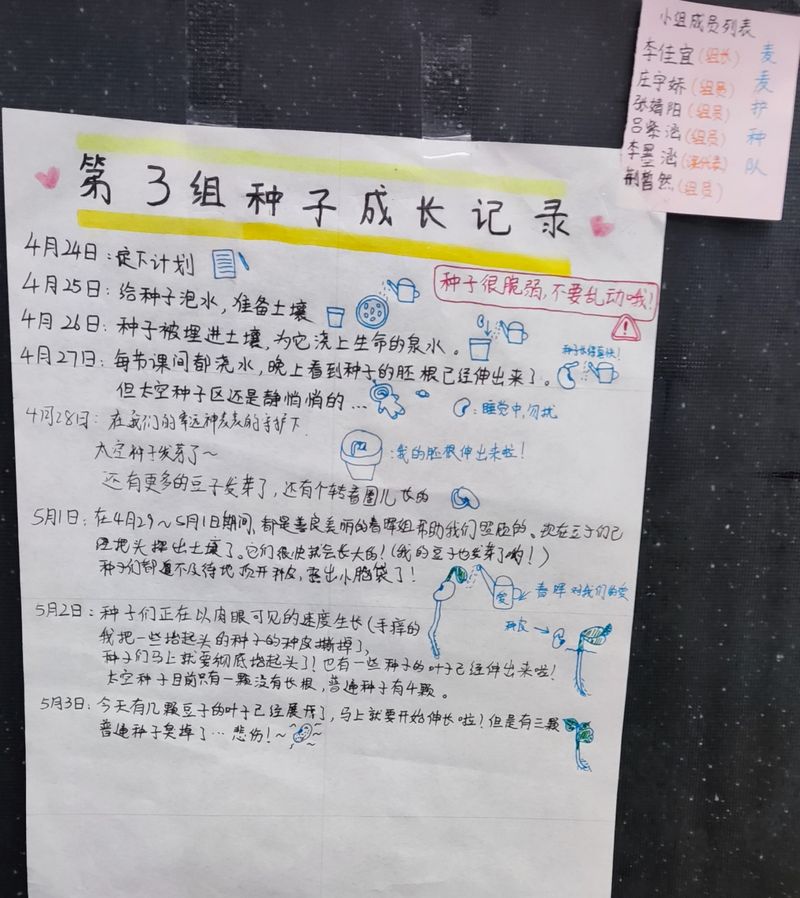 小组成员列表
李佳宜(组长) 麦
庄宇娇(组员) 麦
张婧阳(组员) 护
吕紫涵(组员) 种
李墨涵(课代表) 队
荆哲然(组员)
第3组种子成长记录
4月24日:定下计划
种子很脆弱,不要乱动哦!
4月25日:给种子泡水,准备土壤
4月26日:种子被埋进土壤,为它浇上生命的泉水。
4月27日:每节课间都浇水,晚上看到种子的胚根已经伸出来了。
但太空种子区还是静悄悄的...
:睡觉中,勿扰
4月28日:在我们的幸运神麦麦的守护下
太空种子发芽了~
:我的胚根伸出来啦!
还有更多的豆子发芽了,还有个转着圈儿长的
5月1日:在4月29~5月1日期间,都是善良美丽的春晖组帮助我们照顾的。现在豆子们已
经把头探出土壤了。它们很快就会长大的!(我的豆子也发芽了哟!)
种子们都迫不及待地顶开种皮,露出小脑袋了!
爱
春晖对我们的爱
5月2日:种子们正在以肉眼可见的速度生长(手痒的
我把一些抬起头的种子的种皮撕掉了)
种皮
种子们马上就要彻底抬起头了!也有一些种子的叶子已经伸出来啦!
太空种子目前只有一颗没有长根,普通种子有4颗。
5月3日:今天有几颗豆子的叶子已经展开了,马上就要开始伸长啦!但是有三颗
普通种子臭掉了...悲伤!~